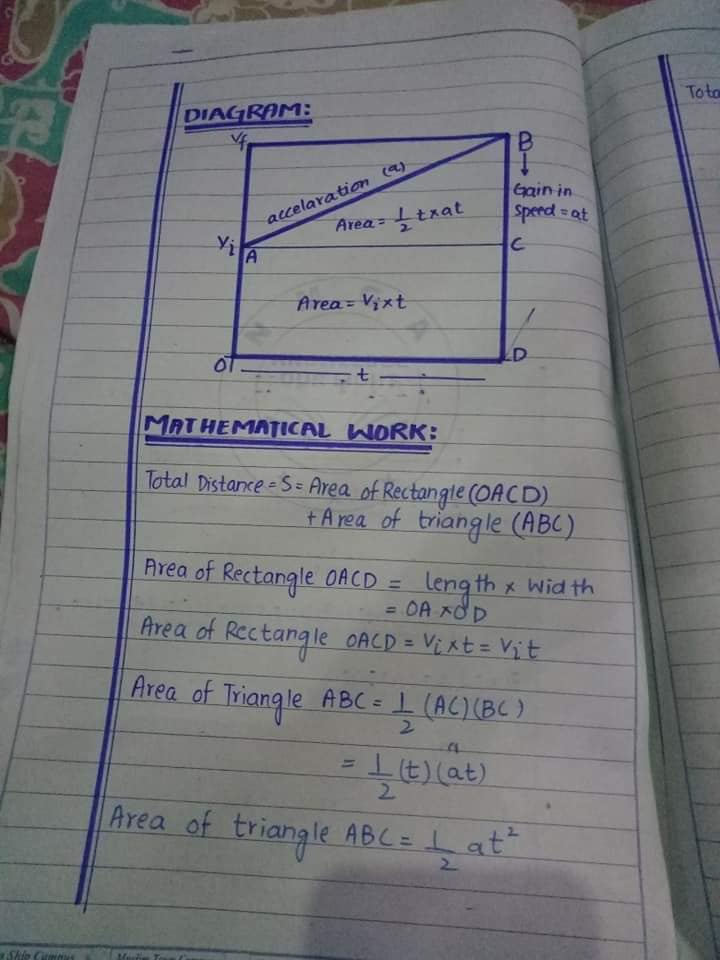 DIAGRAM:
Vf
B
accelaration (a)
Gain in
Speed = at
Area = 1/2 t×at
Vi
A
C
Area = Vi×t
O
D
t
MATHEMATICAL WORK:
Total Distance = S = Area of Rectangle (OACD)
+ Area of triangle (ABC)
Area of Rectangle OACD = length × width
= OA × OD
Area of Rectangle OACD = Vi×t = Vit
Area of Triangle ABC = 1/2 (AC)(BC)
= 1/2 (t)(at)
Area of triangle ABC = 1/2 at²
Ship Campus